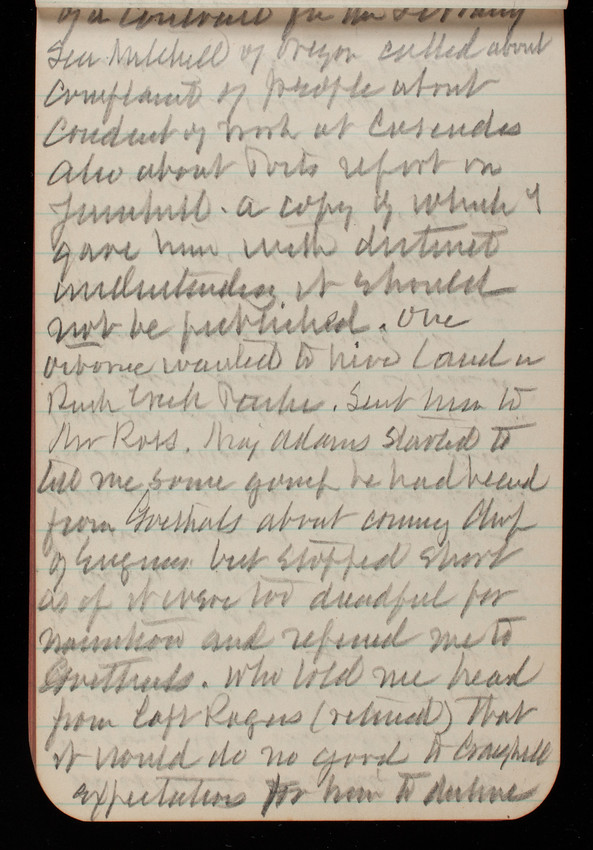 of a contract for the
Sen Mitchell of Oregon called about
Complaint of people about
Conduct of work at Cascades
Also about Posts report on
a copy of which I
gave him with distinct
understanding it should
not be published. One
Osborne wanted to hire land in
Rock Creek Park. Sent him to
Mr Ross. Maj Adams started to
tell me some gossip he had heard
from Goethals about coming Chief
of Engineers but stopped short
as if it were too dreadful for
narration and referred me to
Goethals. Who told me head
from Capt Rogers (retired) that
it would do no good to Craighill
expectations for him to